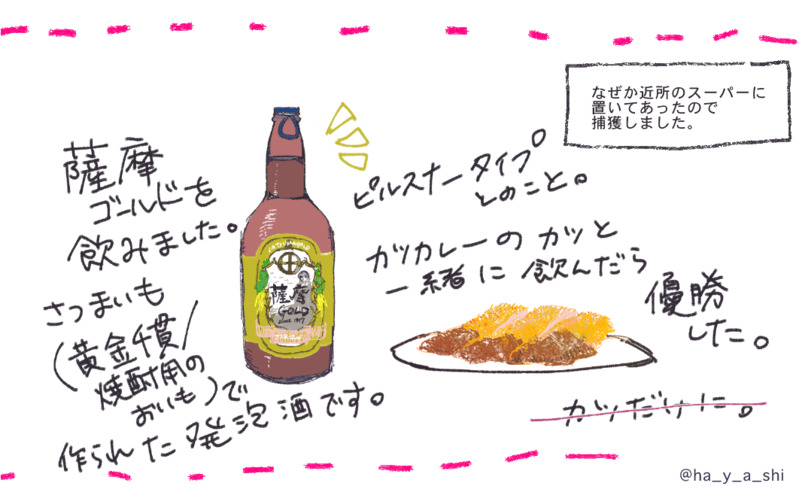 なぜか近所のスーパーに
置いてあったので
捕獲しました。
薩摩
ゴールドを
飲みました。
さつまいも
(黄金千貫/
焼酎用の
おいも)で
作られた発泡酒です。
薩摩
GOLD
ピルスナータイプ
とのこと。
カツカレーのカツと
一緒に飲んだら
優勝
した。
カツだけに。
@ha_y_a_shi